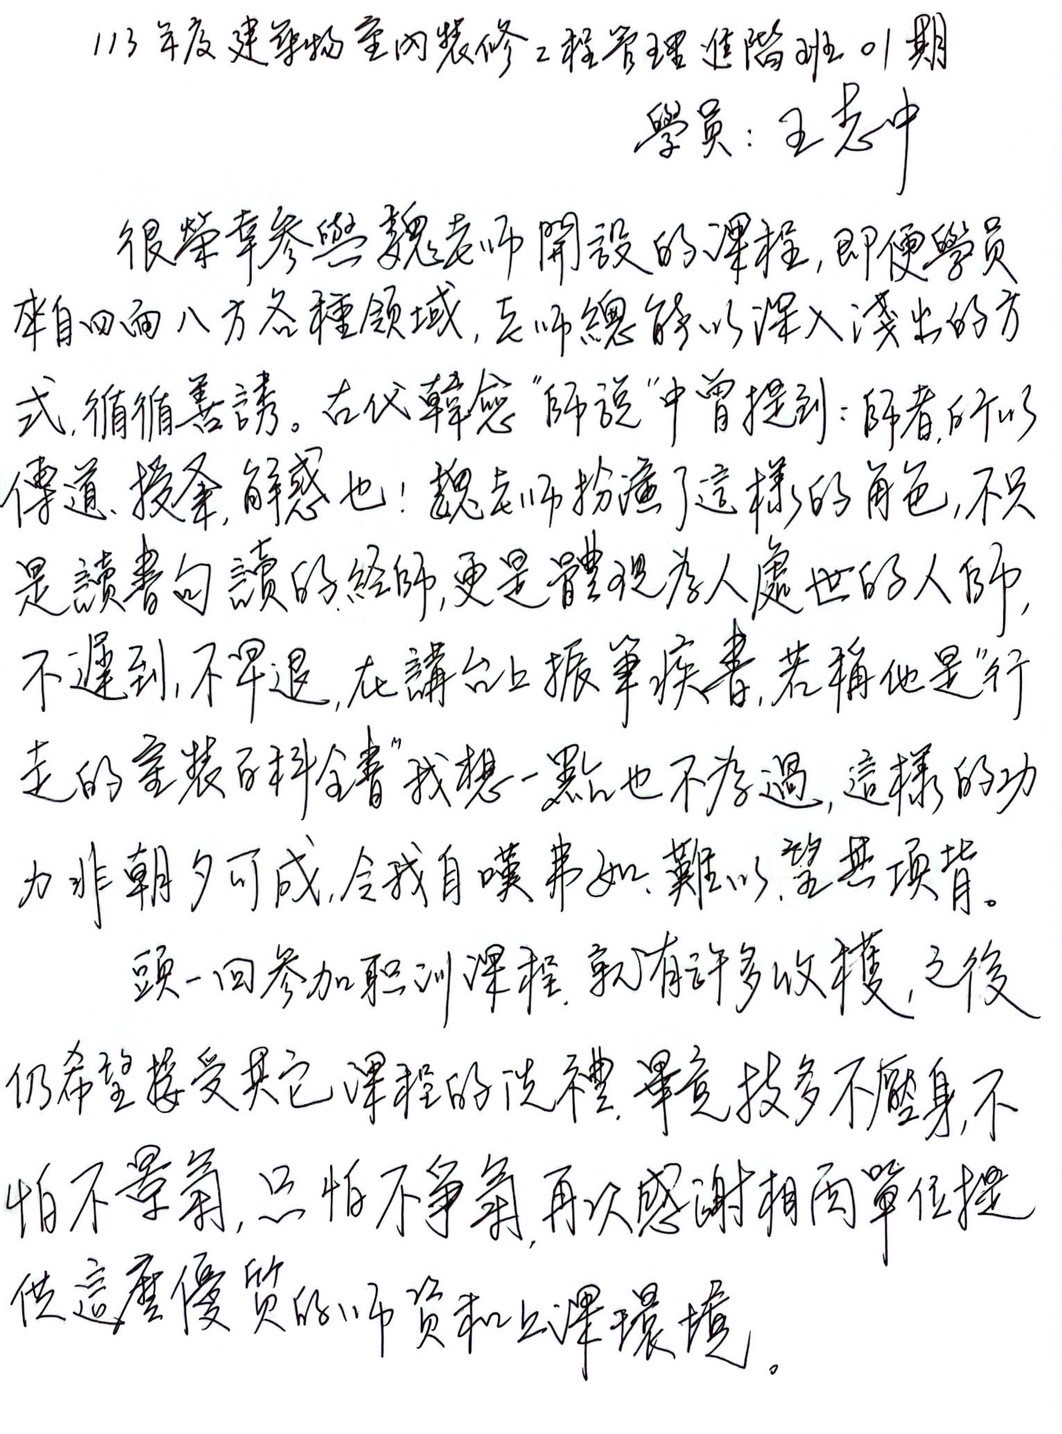 113年度建築物室內裝修工程管理進階班01期
學員：王志中
很榮幸參與魏老師開設的課程,即便學員
來自四面八方各種領域,老師總能以深入淺出的方
式,循循善誘。古代韓愈"師說"中曾提到：師者,所以
傳道、授業,解惑也！魏老師扮演了這樣的角色,不只
是讀書句讀的經師,更是體現為人處世的人師,
不遲到,不早退,在講台上振筆疾書,若稱他是"行
走的室裝百科全書"我想一點也不為過,這樣的功
力非朝夕可成,令我自嘆弗如、難以望其項背。
頭一回參加职訓課程,就有許多收穫,之後
仍希望接受其它課程的洗禮,畢竟技多不壓身,不
怕不景氣,只怕不爭氣,再次感謝相関單位提
供這麼優質的師資和上課環境。